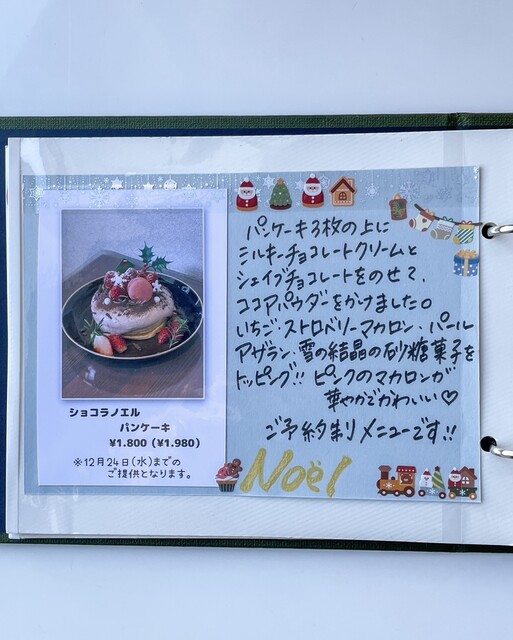 ショコラノエル
パンケーキ
¥1.800（¥1.980）
※12月24日(水)までの
ご提供となります。
パンケーキ3枚の上に
ミルキーチョコレートクリームと
シェイブチョコレートをのせて、
ココアパウダーをかけました。
いちご・ストロベリーマカロン・パール
アザラン、雪の結晶の砂糖菓子を
トッピング!! ピンクのマカロンが
華やかでかわいい♡
ご予約制メニューです!!
Noël